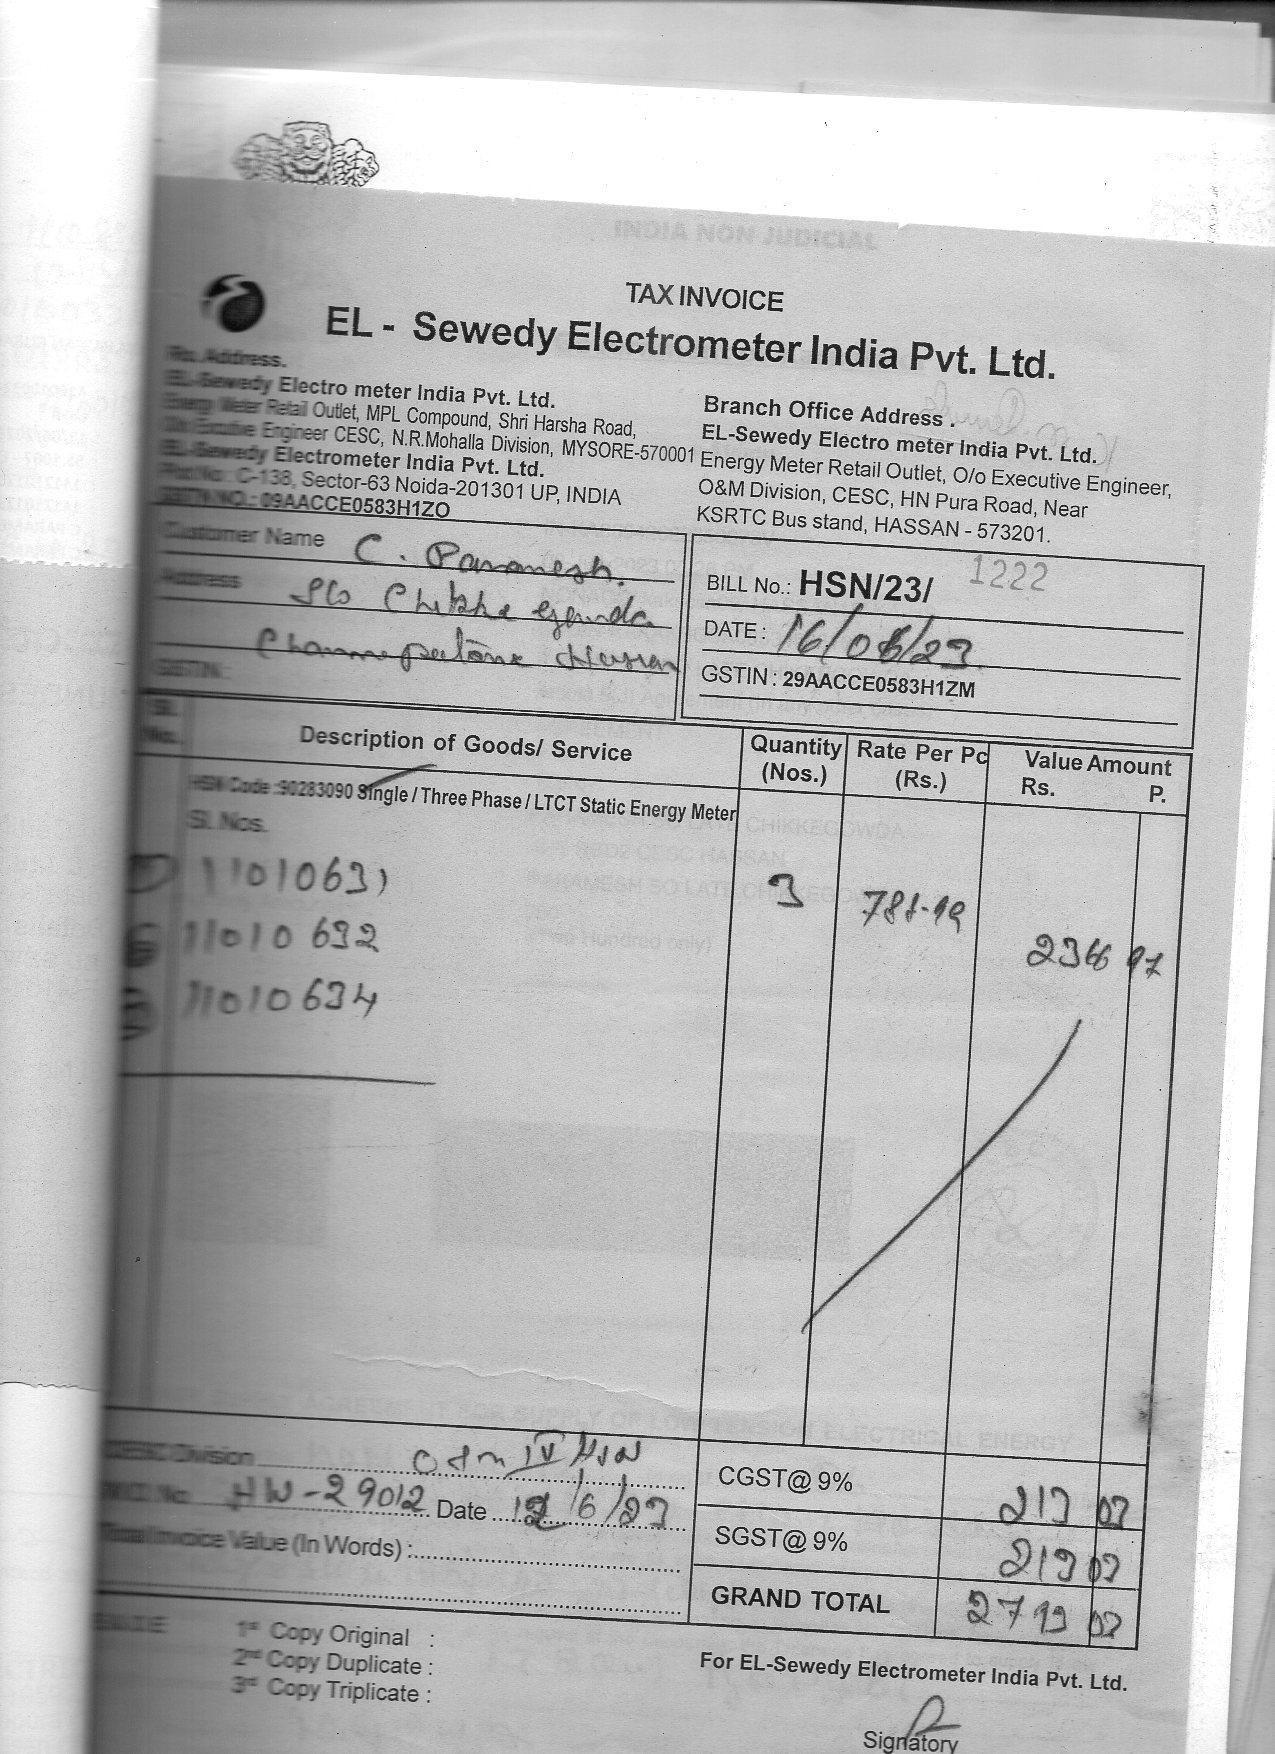 TAX INVOICE
EL - Sewedy Electrometer India Pvt. Ltd.
Ro. Address.
EL-Sewedy Electro meter India Pvt. Ltd.
Energy Meter Retail Outlet, MPL Compound, Shri Harsha Road,
Executive Engineer CESC, N.R.Mohalla Division, MYSORE-570001
EL-Sewedy Electrometer India Pvt. Ltd.
C-138, Sector-63 Noida-201301 UP, INDIA
GSTIN NO.: 09AACCE0583H1ZO
Branch Office Address .
EL-Sewedy Electro meter India Pvt. Ltd.
Energy Meter Retail Outlet, O/o Executive Engineer,
O&M Division, CESC, HN Pura Road, Near
KSRTC Bus stand, HASSAN - 573201.
Customer Name C. Paramesh.
Address S/o Chikke gowda
Hassan
GSTIN :
BILL No.: HSN/23/ 1222
DATE : 16/06/23
GSTIN : 29AACCE0583H1ZM
Sl. No.
Description of Goods/ Service
Quantity (Nos.)
Rate Per Pc (Rs.)
Value Amount
Rs. P.
HSN Code :90283090 Single / Three Phase / LTCT Static Energy Meter
Sl. Nos.
11010631
11010632
11010634
3
CESC Division O&M IV HSN
HW-29012 Date 12/6/23
Total Invoice Value (In Words) :
CGST@ 9%
SGST@ 9%
GRAND TOTAL
E&OE
1st Copy Original :
2nd Copy Duplicate :
3rd Copy Triplicate :
For EL-Sewedy Electrometer India Pvt. Ltd.
Signatory